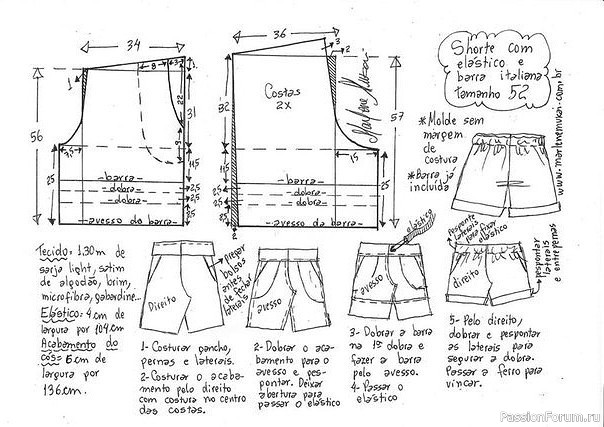 34
36
8
3
1
3
2
22
31
56
9
7,5
25
11,5
2,5
2,5
barra
dobra
dobra
avesso da barra
Costas
2x
32
57
15
11,5
25
2,5
2,5
barra
dobra
dobra
avesso da barra
2
Marlene Mukai
Shorte com
elástico e
barra italiana
tamanho 52
* Molde sem
margem
de
costura
* Barra já
incluída
www.marlenemukai.com.br
Tecido: 1.30m de
sarja light, satim
de algodão, brim,
microfibra, gabardine...
Elástico: 4 cm de
largura por 104 cm
Acabamento do
cós = 6 cm de
largura por
136 cm.
Direito
Pregar
bolsos
antes
de fechar
laterais
avesso
avesso
elástico
direito
Pesponte
laterais para fixar
elástico
Pespontar
laterais
e entrepernas
1- Costurar gancho,
pernas e laterais.
2- Costurar o acaba-
mento pelo direito
com costura no centro
das costas.
2- Dobrar o aca-
bamento para o
avesso e pes-
pontar. Deixar
abertura para
passar o elástico
3- Dobrar a barra
na 1ª dobra e
fazer a barra
pelo avesso.
4- Passar o
elástico
5- Pelo direito,
dobrar e pespontar
as laterais para
segurar a dobra.
Passar a ferro para
vincar.
PassionForum.ru